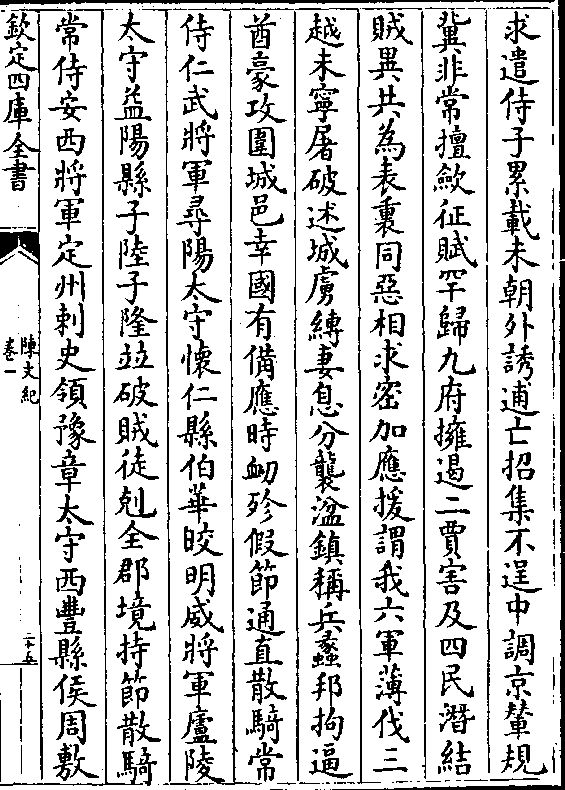 求遣侍子累載未朝外誘逋亡招集不逞中調京輦規
冀非常擅歛征賦罕歸九府擁遏二賈害及四民潛結
賊異共為表裏同惡相求密加應援謂我六軍薄伐三
越未寧屠破述城虜縛妻息分襲湓鎮稱兵蠡邦拘逼
酋豪攻圍城邑幸國有備應時衂殄假節通直散騎常
侍仁武將軍尋陽太守懷仁縣伯華晈明威將軍廬陵
太守益陽縣子陸子隆竝破賊徒剋全郡境持節散騎
常侍安西將軍定州刺史領豫章太守西豐縣侯周敷
欽定四庫全書
陳文紀
卷一
二十五